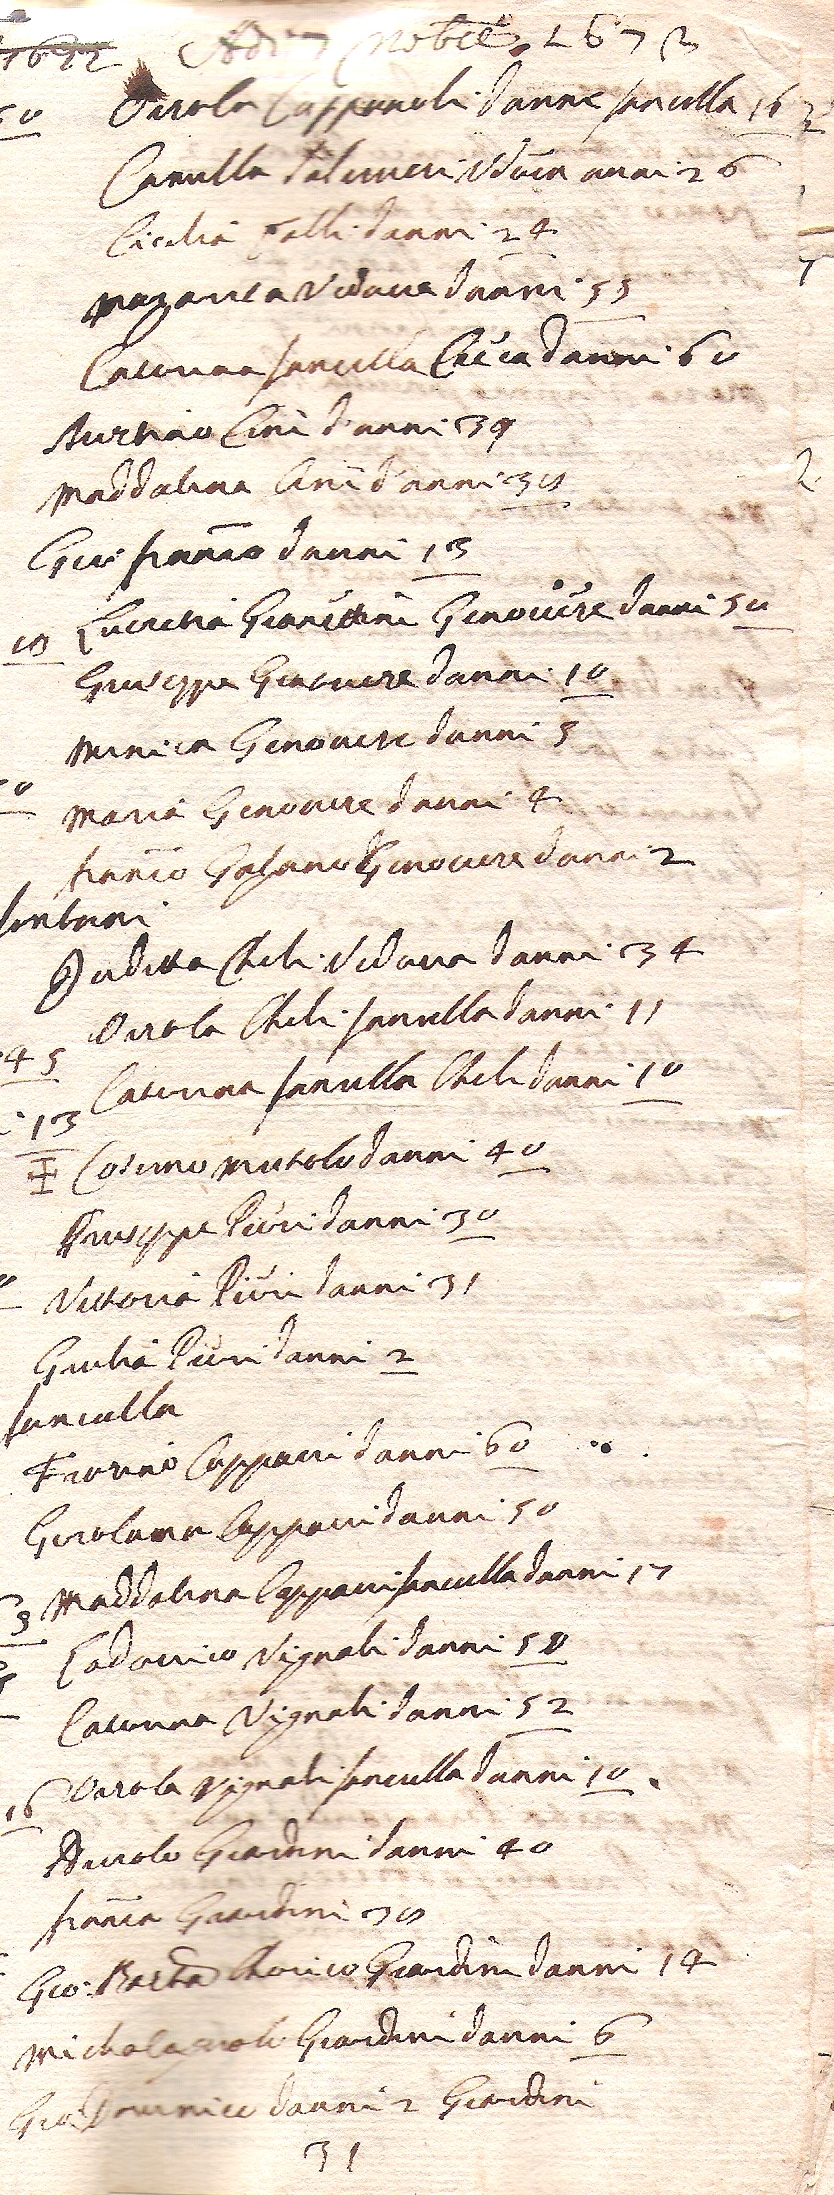 1672 Adi 7 Nobre. 1673
50 Orsola Cappanoli d'anne fanculla 16
Camilla Vidua anni 26
Cicilia Falli d'anni 24
Vidaua d'anni 55
Caterina fanculla Cieca d'anni 60
Cini d'anni 39
Maddalena Cini d'anni 38
Gio: Franco d'anni 13
Lucretia Genouese d'anni 50
Giuseppe Genouese d'anni 10
Menica Genouese d'anni 5
Maria Genouese d'anni 4
Franco Genouese d'anni 2
Juditta Cheli Vidoua d'anni 34
Orsola Cheli fanculla d'anni 11
45 Caterina fanculla Cheli d'anni 10
13
Cosimo Mutolo d'anni 40
Giuseppe Piuri d'anni 30
Vittoria Piuri d'anni 31
Giulia Piuri d'anni 2
fanculla
Cappani d'anni 60
Girolama Cappani d'anni 50
3 Maddalena Cappani fanculla d'anni 17
Lodouico Vignali d'anni 58
Caterina Vignali d'anni 52
16 Orsola Vignali fanculla d'anni 10
Giardini d'anni 40
Franca Giardini 38
Gio: Batta Giardini d'anni 14
Michelagnolo Giardini d'anni 6
Gio: Domenico d'anni 2 Giardini
31